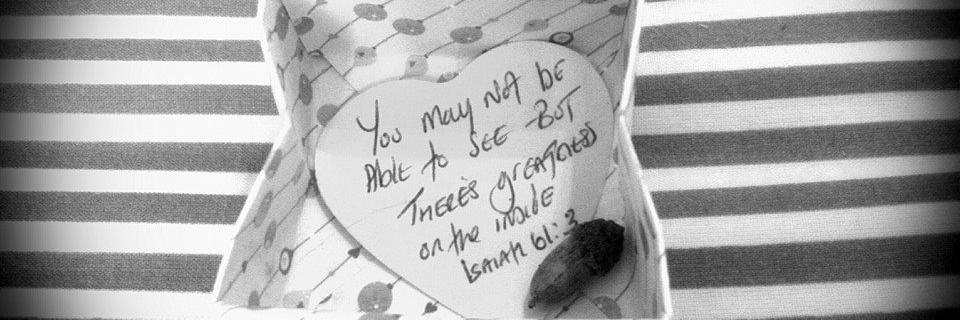 You may not be
Able to see But
There's greatness
on the inside
Isaiah 61:3